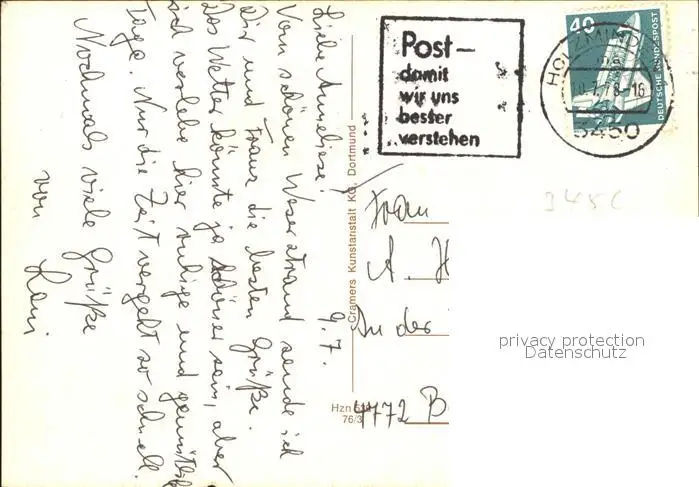 Liebe Anneliese! 9.7.
Vom schönen Weserstrand sende ich
Dir und Franz die besten Grüße.
Das Wetter könnte ja schöner sein, aber
ich verlebe hier ruhige und gemütliche
Tage. Nur die Zeit vergeht so schnell.
Nochmals viele Grüße
von
Cramers Kunstanstalt KG, Dortmund
Hzn
76/3
Post—
damit
wir uns
besser
verstehen
HOLZMINDEN
-16
3450
40
DEUTSCHE BUNDESPOST
345
Frau
A. H
An der
4772 B
privacy protection
Datenschutz